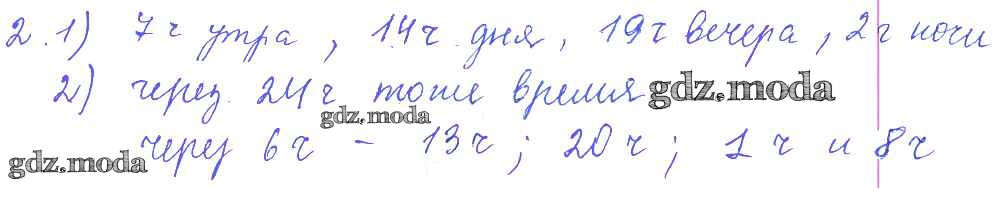 2. 1) 7 ч утра, 14 ч дня, 19 ч вечера, 2 ч ночи
2) через 24 ч тоже время gdz.moda
gdz.moda
через 6 ч - 13 ч; 20 ч; 1 ч и 8 ч
gdz.moda